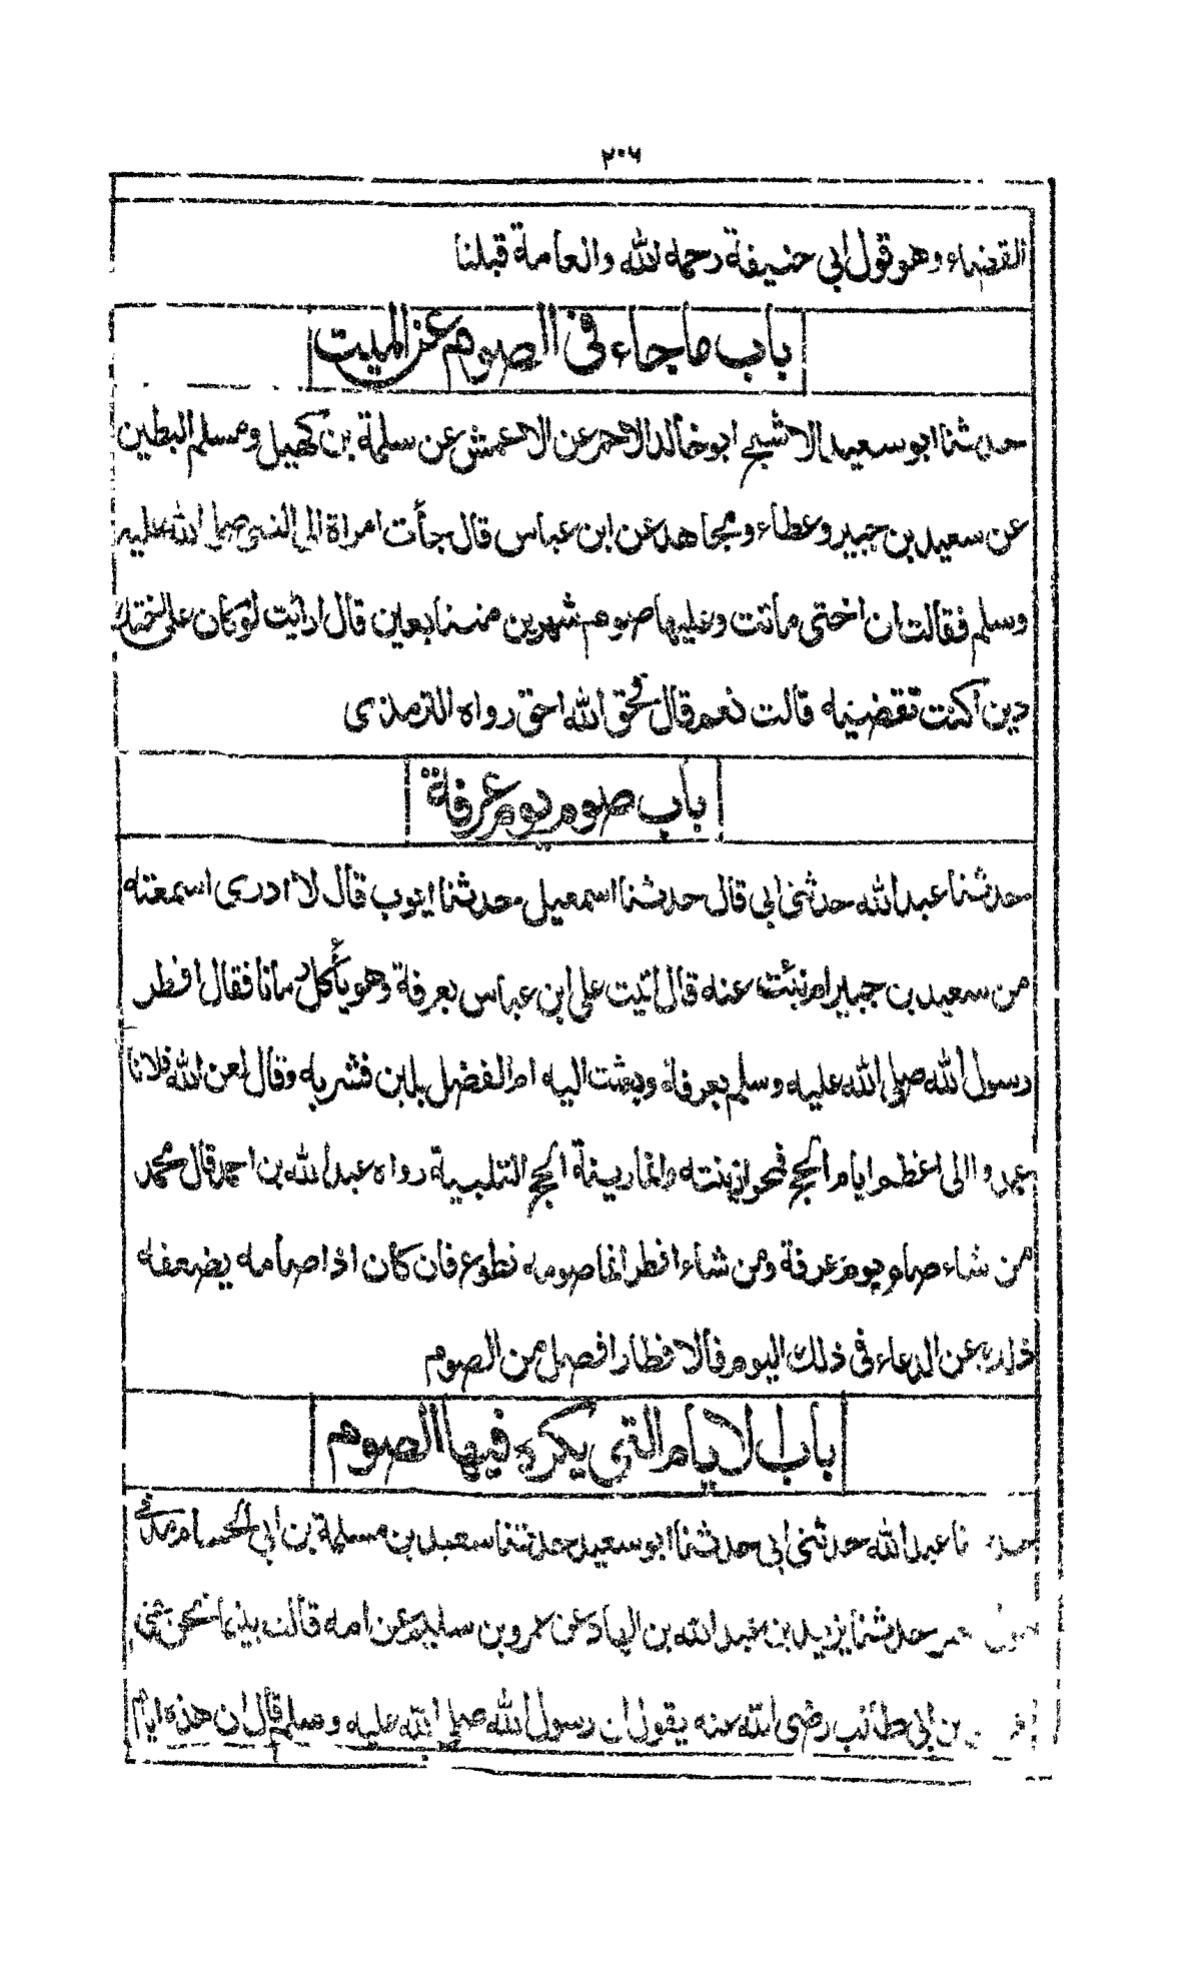 ٢٠٦
القضاء وهو قول ابى حنيفة رحمه الله والعامة قبلنا
باب ماجاء فى الصوم عن الميت
حدثنا ابو سعيد الاشج ابو خالد الاحمر عن الاعمش عن سلمة بن كهيل ومسلم البطين
عن سعيد بن جبير وعطاء ومجاهد عن ابن عباس قال جأت امراة الى النبى صلى الله عليه
وسلم فقالت ان اختى ماتت وعليها صوم شهرين متتابعين قال ارائيت لو كان على اختك
دين اكنت تقضينه قالت نعم قال فحق الله احق رواه الترمذى
باب صوم يوم عرفة
حدثنا عبد الله حدثنى ابى قال حدثنا اسمعيل حدثنا ايوب قال لا ادرى اسمعته
من سعيد بن جبير ام نبئت عنه قال اتيت على ابن عباس بعرفة وهو يأكل رمانا فقال افطر
رسول الله صلى الله عليه وسلم بعرفة وبعثت اليه ام الفضل بلبن فشربه وقال لعن الله فلانا
عمدوا الى اعظم ايام الحج فمحوا زينته وانما زينة الحج التلبية رواه عبد الله بن احمد قال محمد
من شاء صام يوم عرفة ومن شاء افطر انما صومه تطوع فان كان اذا صامه يضعفه
ذلك عن الدعاء فى ذلك اليوم فالافطار افضل من الصوم
باب الايام التى يكره فيها الصوم
نا عبد الله حدثنى ابى حدثنا ابو سعيد حدثنا سعيد بن مسلمة بن ابى الحسام
حدثنا يزيد بن عبد الله بن الهاد عن عمرو بن سليم عن امه قالت بينما نحن بمنى
بن ابى طالب رضى الله عنه يقول ان رسول الله صلى الله عليه وسلم قال ان هذه ايام